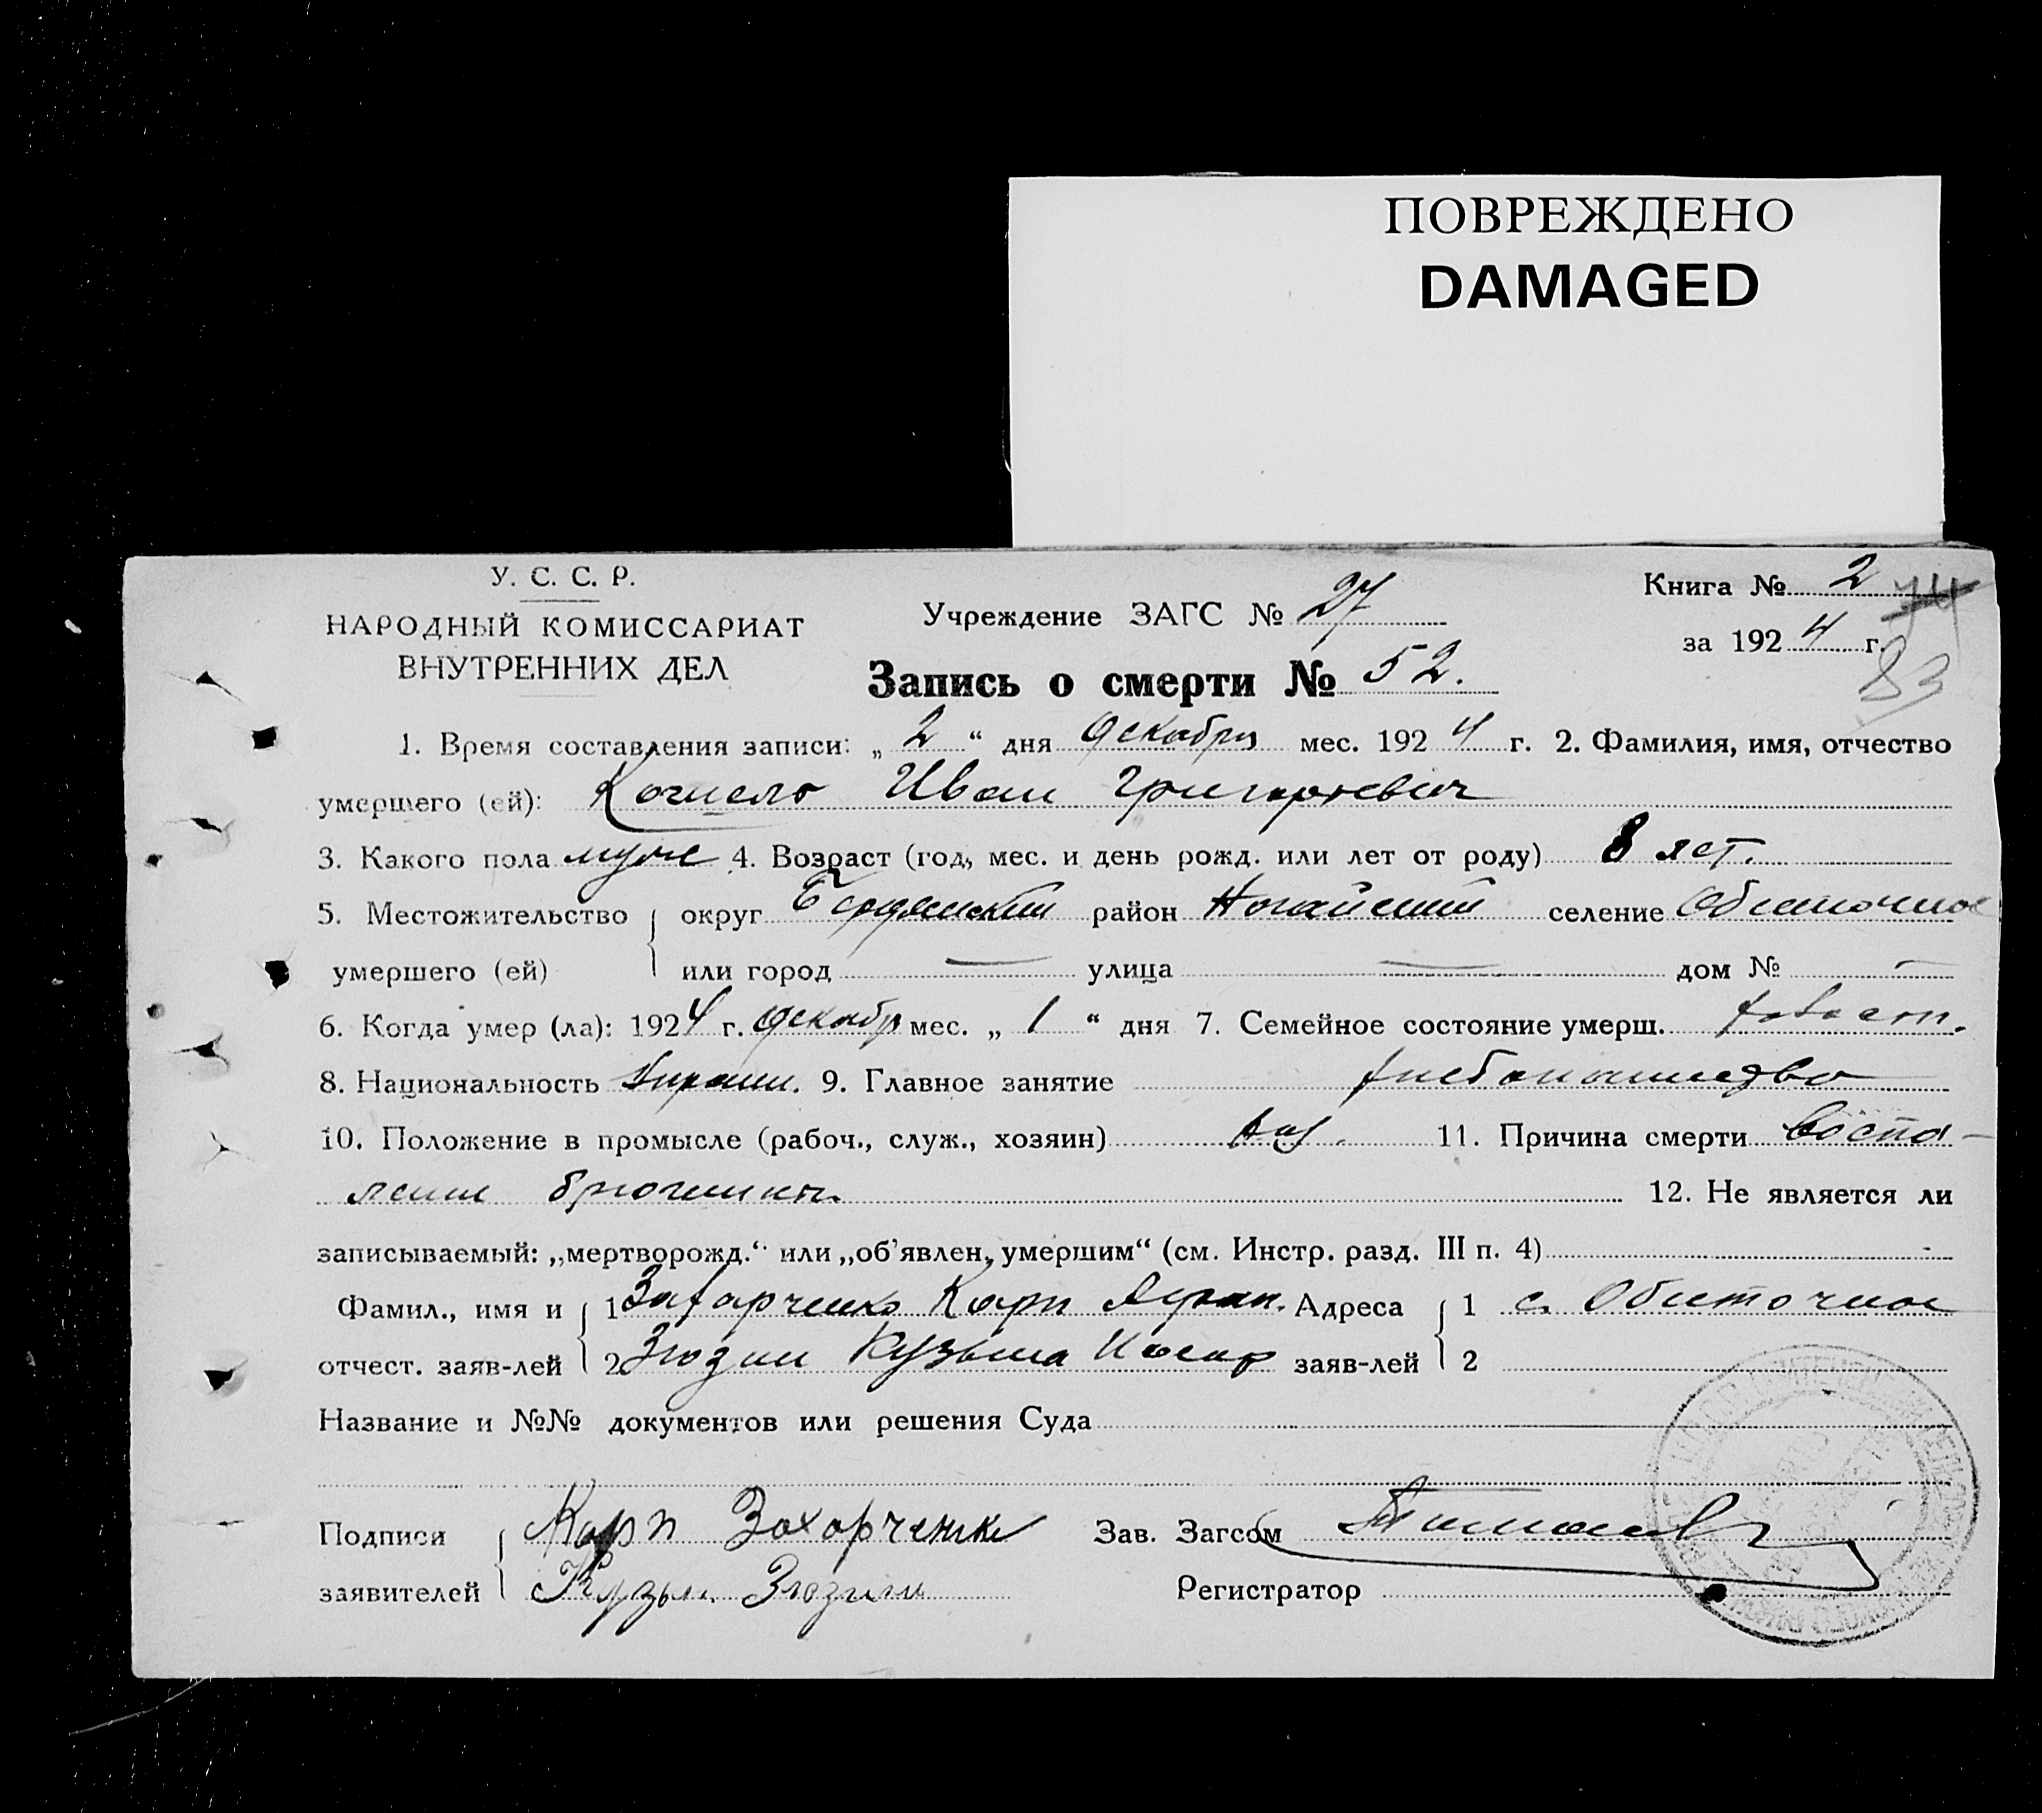 ПОВРЕЖДЕНО
DAMAGED
У. С. С. Р.
НАРОДНЫЙ КОМИССАРИАТ
ВНУТРЕННИХ ДЕЛ
Учреждение ЗАГС № 27
Книга № 2
за 1924 г.
83
Запись о смерти № 52.
1. Время составления записи: „2“ дня декабря мес. 1924 г. 2. Фамилия, имя, отчество
умершего (ей): Иван Григорьевич
3. Какого пола муж 4. Возраст (год, мес. и день рожд. или лет от роду) 8 лет.
5. Местожительство округ Бердянский район Ногайский селение Обиточное
умершего (ей) или город — улица — дом № —
6. Когда умер (ла): 1924 г. декабр мес. „1“ дня 7. Семейное состояние умерш. холост.
8. Национальность Украин. 9. Главное занятие хлебопашество
10. Положение в промысле (рабоч., служ., хозяин) хоз. 11. Причина смерти воспа-
ление брюшины 12. Не является ли
записываемый: „мертворожд.“ или „об'явлен, умершим“ (см. Инстр. разд. III п. 4) -
Фамил., имя и 1 Захарченко Карп Адреса 1 с. Обиточное
отчест. заяв-лей 2 Зюзин Кузьма заяв-лей 2
Название и №№ документов или решения Суда
Подписи Карп Захорченко Зав. Загсом
заявителей Кузьма Зюзин Регистратор